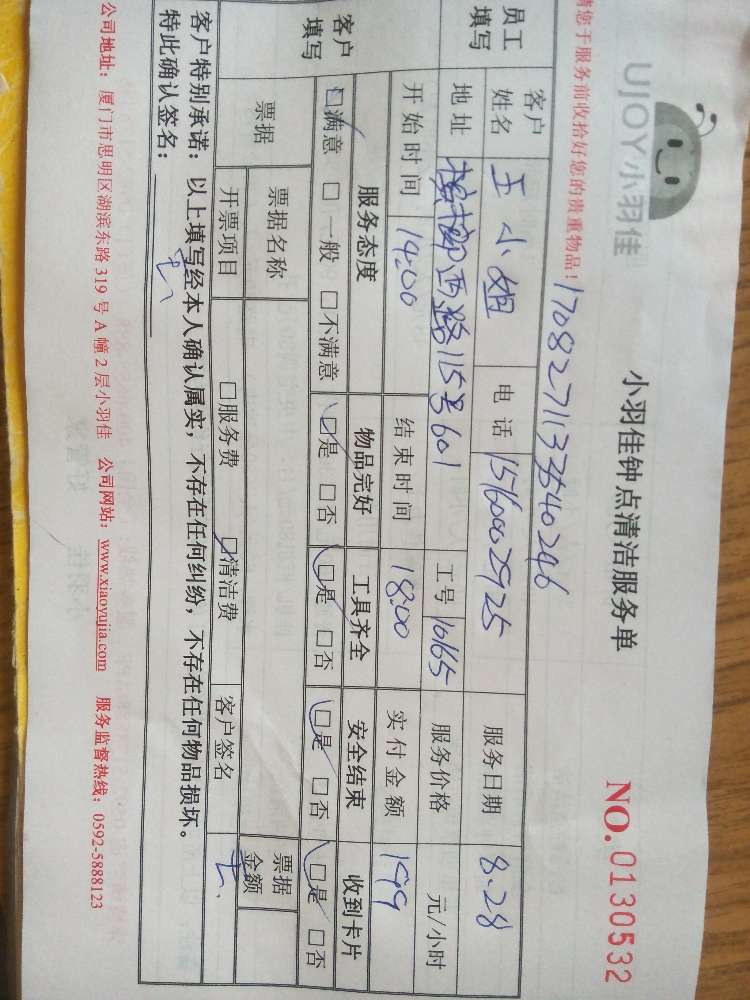 UJOY小羽佳
小羽佳钟点清洁服务单
NO.0130532
请您于服务前收拾好您的贵重物品！
1708271133540246
员工填写
客户姓名 王小姐 电话 15760002925 服务日期 8.28
地址 西路158 601 工号 10165 服务价格 元/小时
开始时间 14:00 结束时间 18:00 实付金额 199
客户填写
服务态度 物品完好 工具齐全 安全结束 收到卡片
☑满意 □一般 □不满意 ☑是 □否 ☑是 □否 ☑是 □否 ☑是 □否
票据 票据名称 票据金额
开票项目 □服务费 ☑清洁费 客户签名
客户特别承诺：以上填写经本人确认属实，不存在任何纠纷，不存在任何物品损坏。
特此确认签名：
公司地址：厦门市思明区湖滨东路319号A幢2层小羽佳 公司网站：www.xiaoyujia.com 服务监督热线：0592-5888123